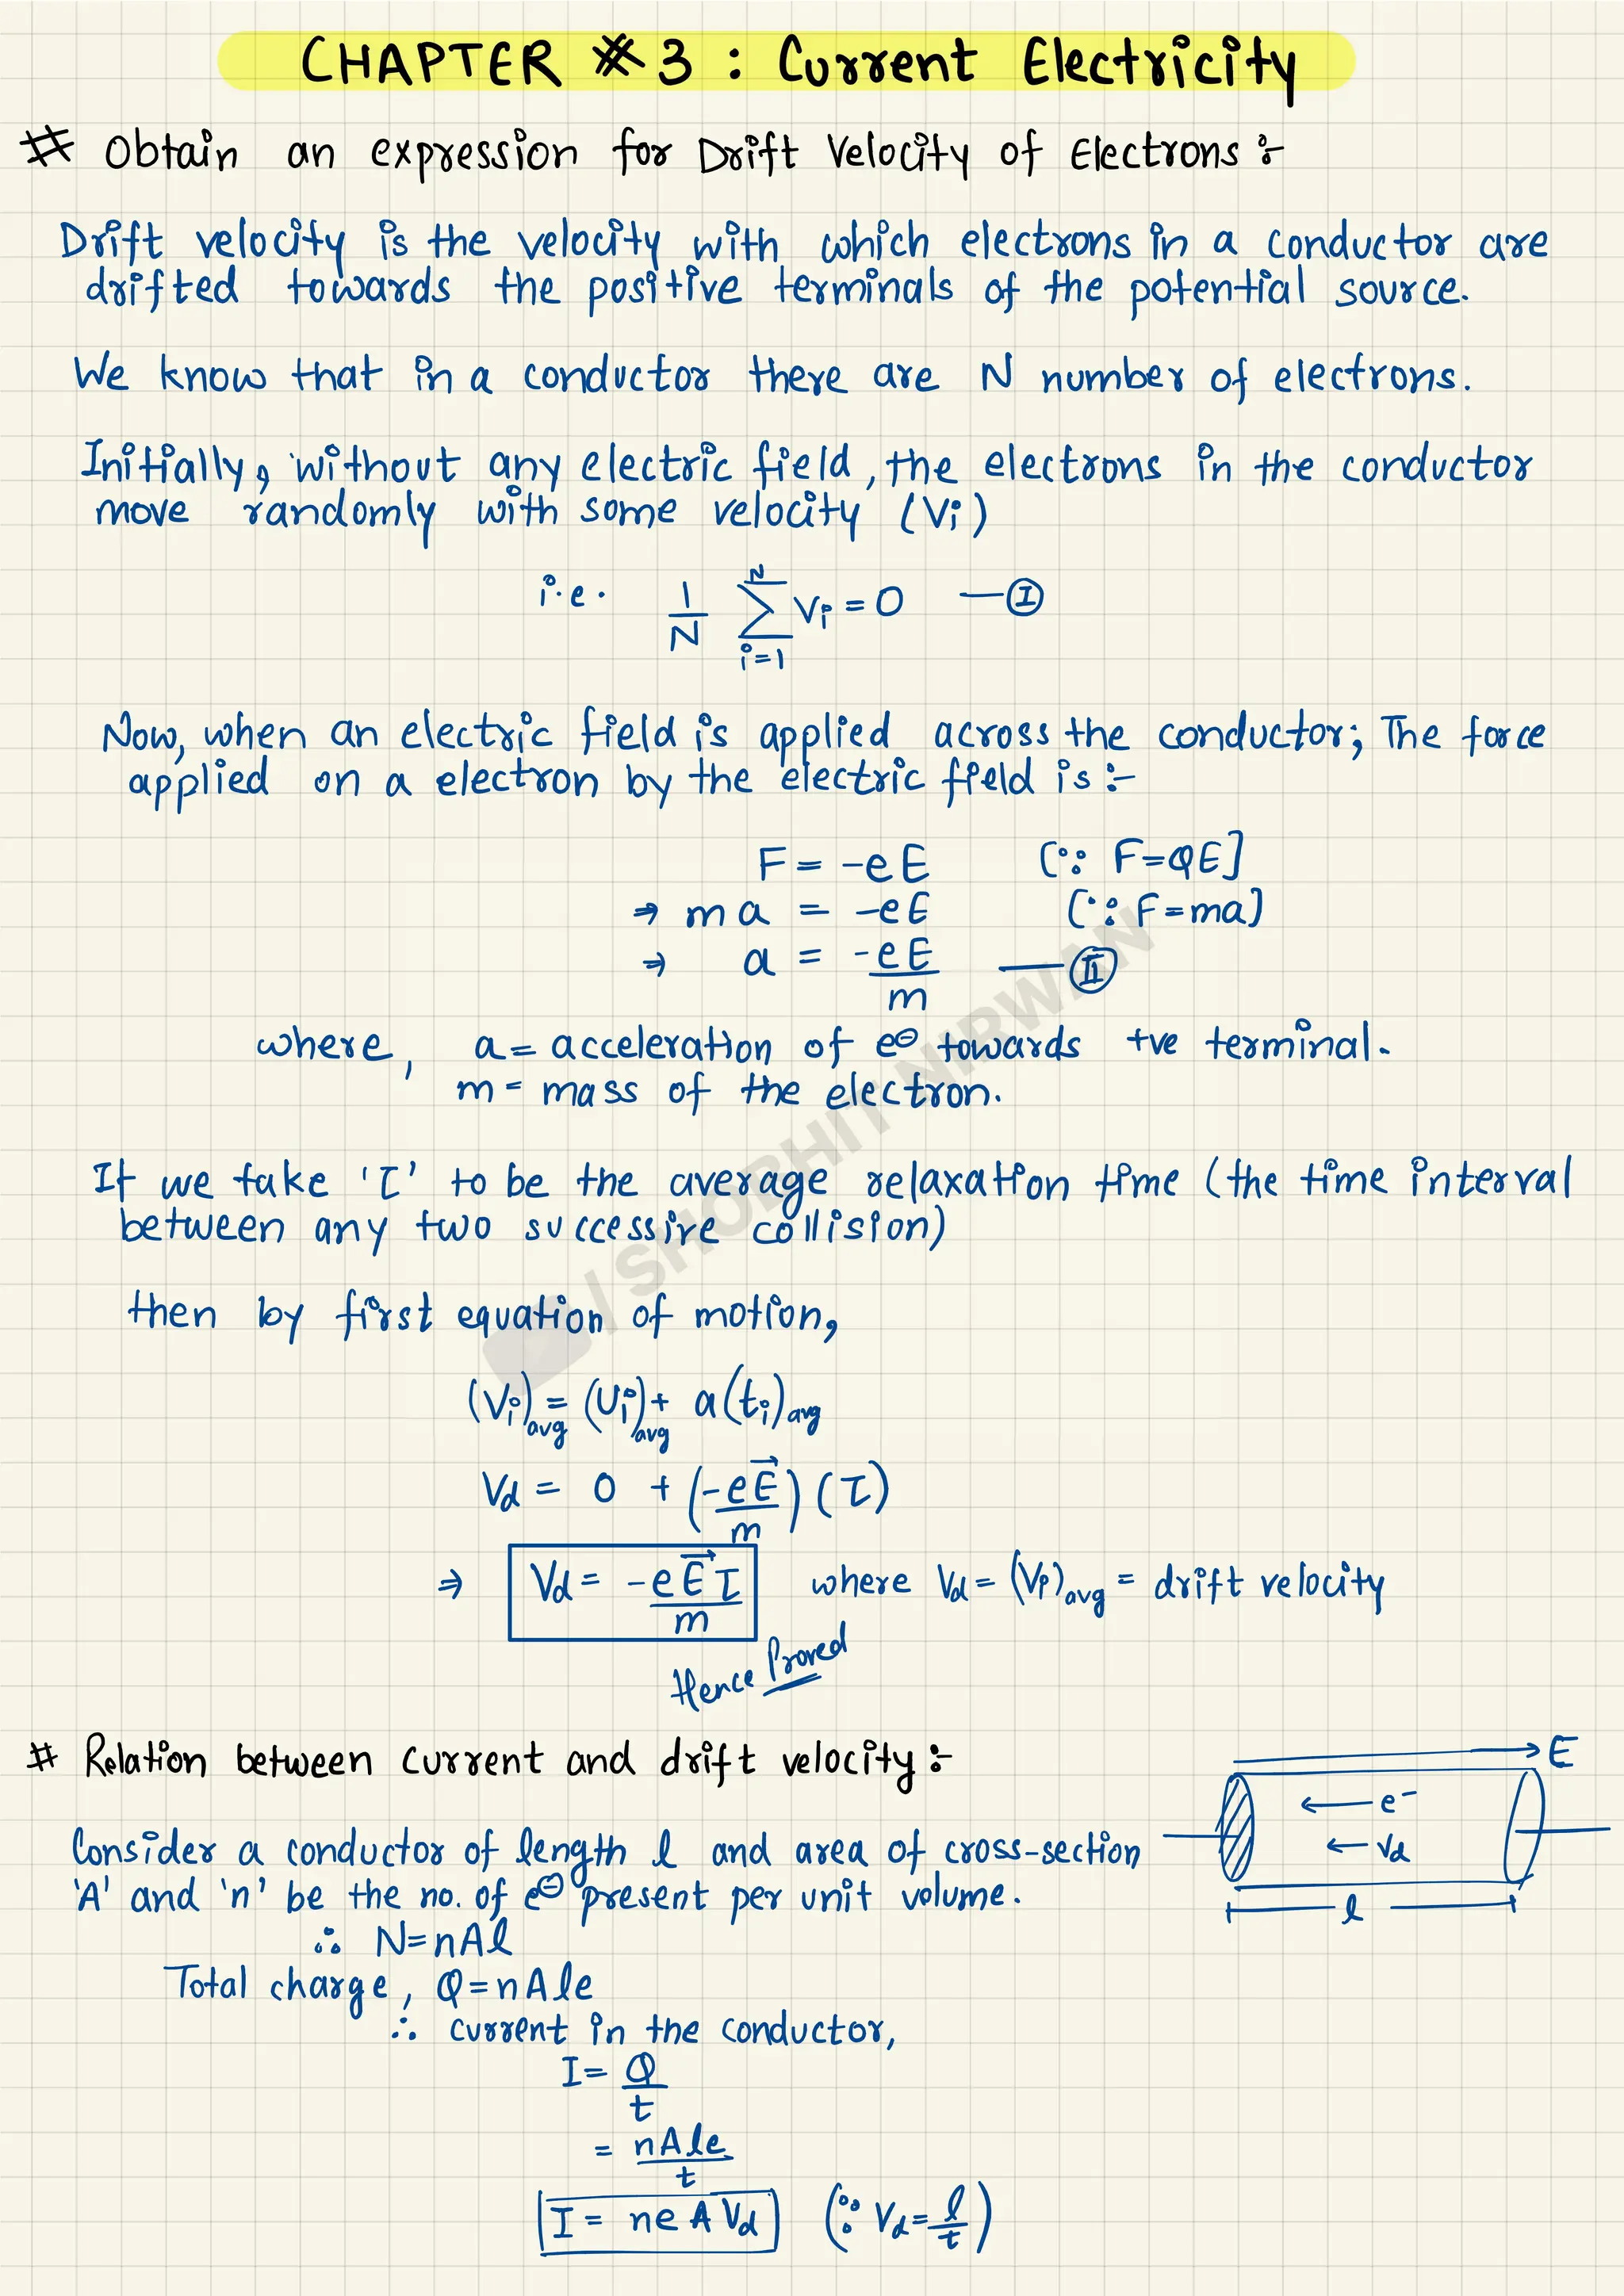 CHAPTER # 3 : Current Electricity
# Obtain an expression for Drift Velocity of Electrons :-
Drift velocity is the velocity with which electrons in a conductor are
drifted towards the positive terminals of the potential source.
We know that in a conductor there are N number of electrons.
Initially, without any electric field, the electrons in the conductor
move randomly with some velocity (Vi)
i.e. 1/N ∑_{i=1}^{N} Vi = 0 —Ⓘ
Now, when an electric field is applied across the conductor; The force
applied on a electron by the electric field is :-
F = -eE [∵ F=QE]
⇒ ma = -eE [∵ F=ma]
⇒ a = -eE/m —(II)
where, a = acceleration of e⊖ towards +ve terminal.
m = mass of the electron.
If we take 'τ' to be the average relaxation time (the time interval
between any two successive collision)
/ SHOBHIT NIRWAN
then by first equation of motion,
(Vi)avg = (Ui)avg + a(ti)avg
Vd = 0 + (-eE⃗/m)(τ)
⇒ Vd = -eE⃗τ/m where Vd = (Vi)avg = drift velocity
Hence Proved
# Relation between current and drift velocity :-
E
e⁻
Vd
l
Consider a conductor of length l and area of cross-section
'A' and 'n' be the no. of e⊖ present per unit volume.
∴ N=nAl
Total charge, Q=nAle
∴ current in the conductor,
I = Q/t
= nAle/t
I = neAVd (∵ Vd = l/t)